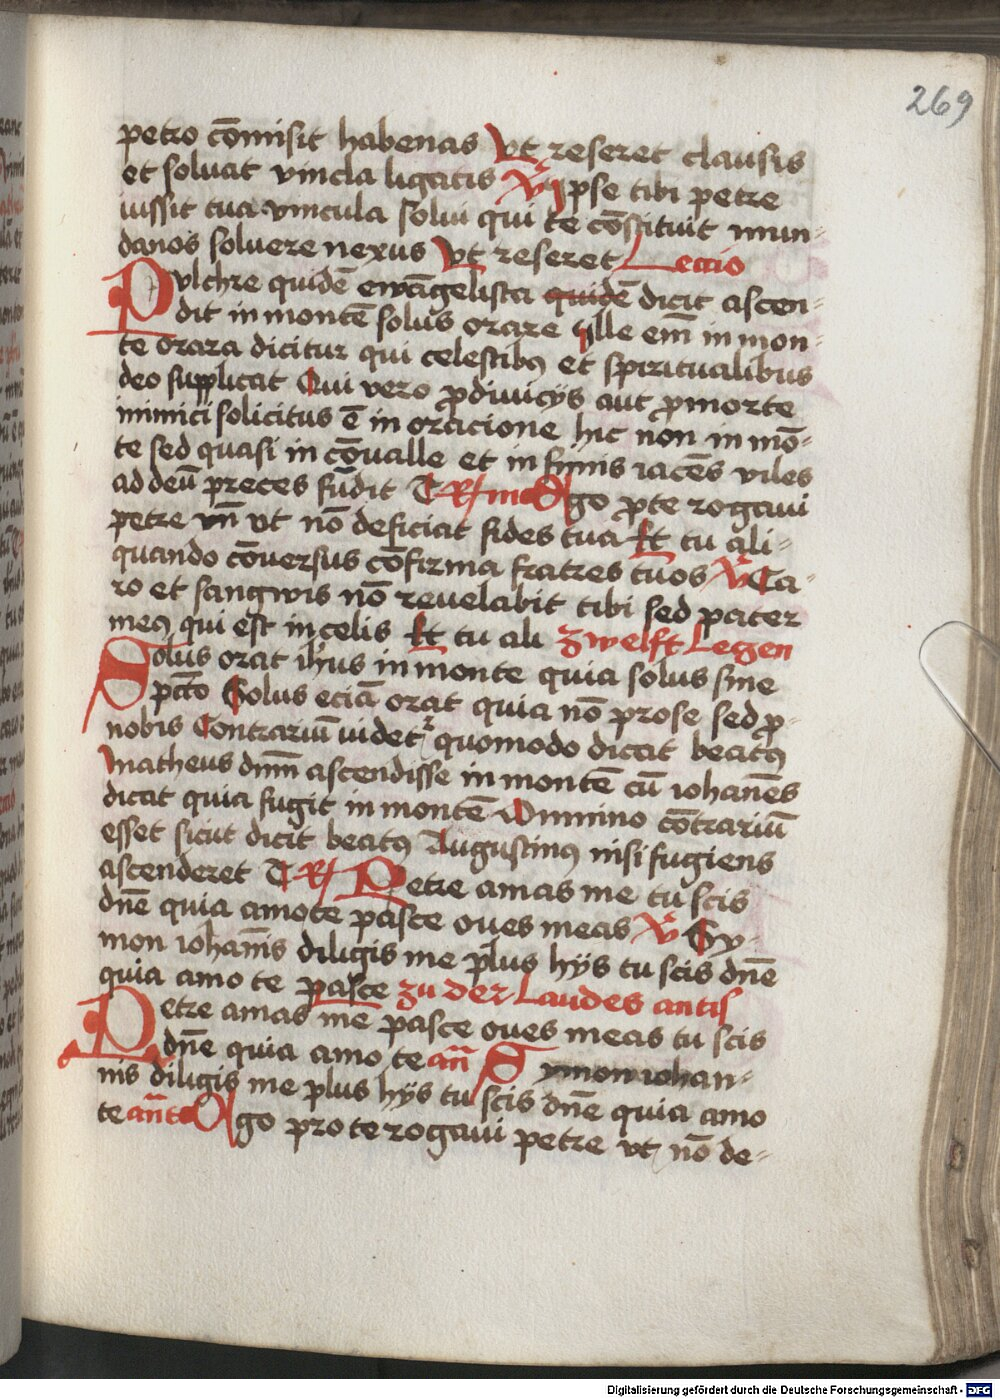 269
petro cōmisit habenas Vt reseret clausis
et soluat vincla ligatis V̄ Ipse tibi petre
iussit tua vincula solui qui te cōstituit mun-
danos soluere nexus Vt reseret Lectio
Pulchre quidē ewāgelista quidē dicit ascen-
dit in montē solus orare Ille em̄ in mon-
te orara dicitur qui celestibꝰ et spiritualibus
deo supplicat Qui vero ꝓ diuicijs aut ꝓ morte
inimici solicitus ē in oracione hic non in mō-
te sed quasi in cōualle et infimis iacēs viles
ad deū preces fūdit T R/ Ego ꝓ te rogaui
petre vn̄ vt nō deficiat fides tua Et tu ali-
quando cōuersus cōfirma fratres tuos V̄ Ca-
ro et sangwis nō reuelabit tibi sed pater
meꝰ qui est in celis Et tu ali zwelft Letzen
Solus orat ih̄us in monte quia solus sine
pctō Solus eciā orat quia nō pro se sed ꝓ
nobis Contrariū videtr quomodo dicat beatꝰ
matheus dnm̄ ascendisse in montē cū iohanēs
dicat quia fugit in montē Omnino cōtrariū
esset sicut dicit beatꝰ Augustinꝰ nisi fugiens
ascenderet T R/ Petre amas me tu scis
dn̄e quia amo te pasce oues meas V̄ Sy-
mon iohānis diligis me plus hijs tu scis dn̄e
quia amo te pasce zu der Laudes antīs
Petre amas me pasce oues meas tu scis
dn̄e quia amo te an̄ Symon iohan-
nis diligis me plus hijs tu scis dn̄e quia amo
te an̄t Ego pro te rogaui petre vt nō de-
Digitalisierung gefördert durch die Deutsche Forschungsgemeinschaft - DFG